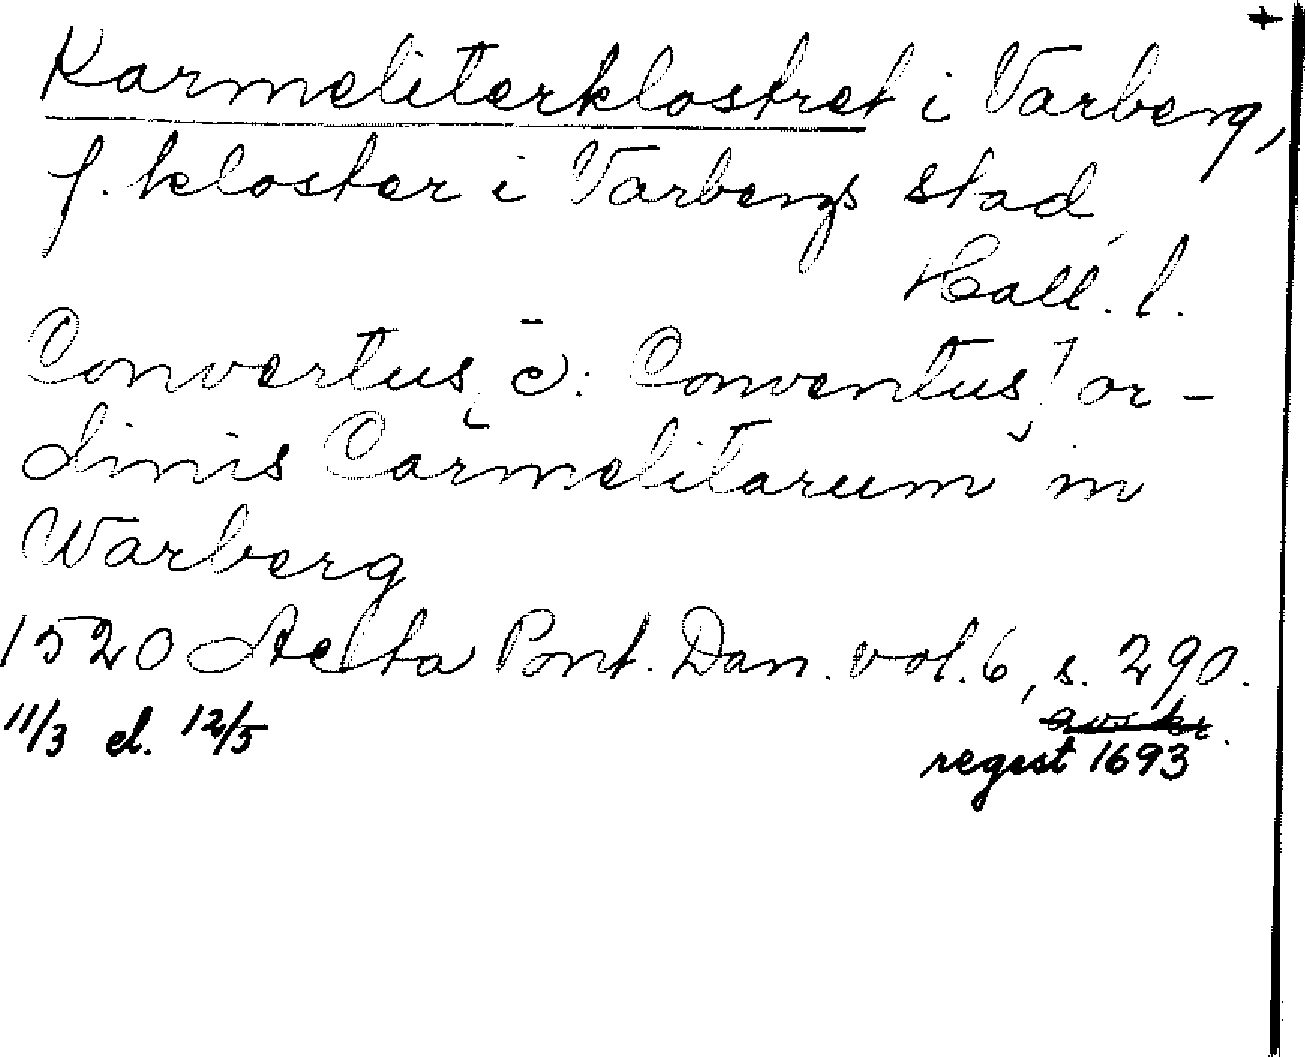 +
Karmeliterklostret i Varberg,
f. kloster i Varbergs stad
Hall. l.
Convertus [ɔ: Conventus] or-
dinis Carmelitarum in
Warberg
1520 Acta Pont. Dan. vol. 6, s. 290.
11/3 el. 12/5 avskr.
regest 1693